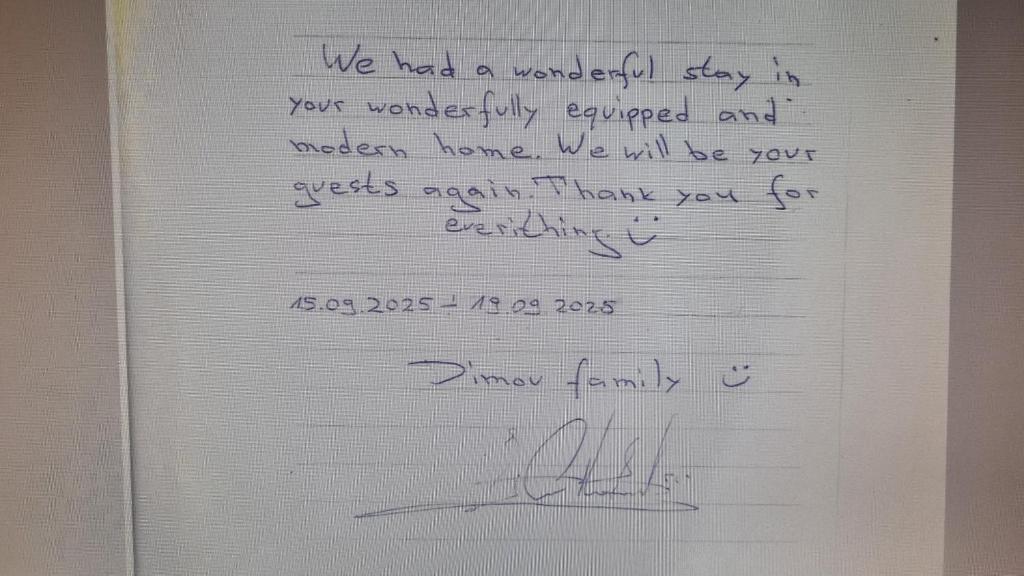 We had a wonderful stay in
your wonderfully equipped and
modern home. We will be your
guests again. Thank you for
everithing :)
15.09.2025 - 19.09.2025
Dimov family :)